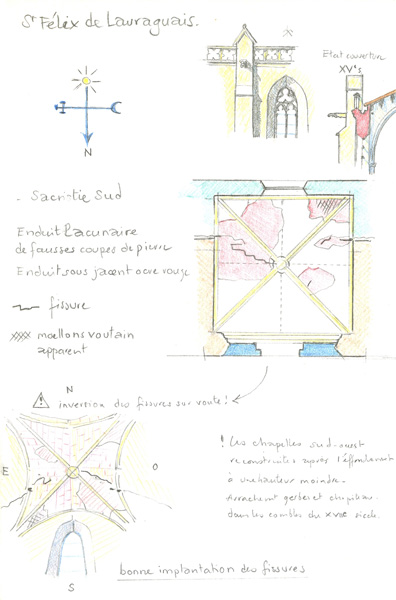 St Félix de Lauraguais.
Etat couverture
XVe s
N
- Sacristie Sud
Enduit lacunaire
de fausses coupes de pierre
Enduit sous jacent ocre rouge
fissure
moellons voutain
apparent
N
⚠ inversion des fissures sur voute !
E
O
S
! Les chapelles sud-ouest
reconstruites après l'effondrement
à une hauteur moindre.
Arrachement gerbes et chapiteau
dans les combles du XVIIe siècle.
bonne implantation des fissures